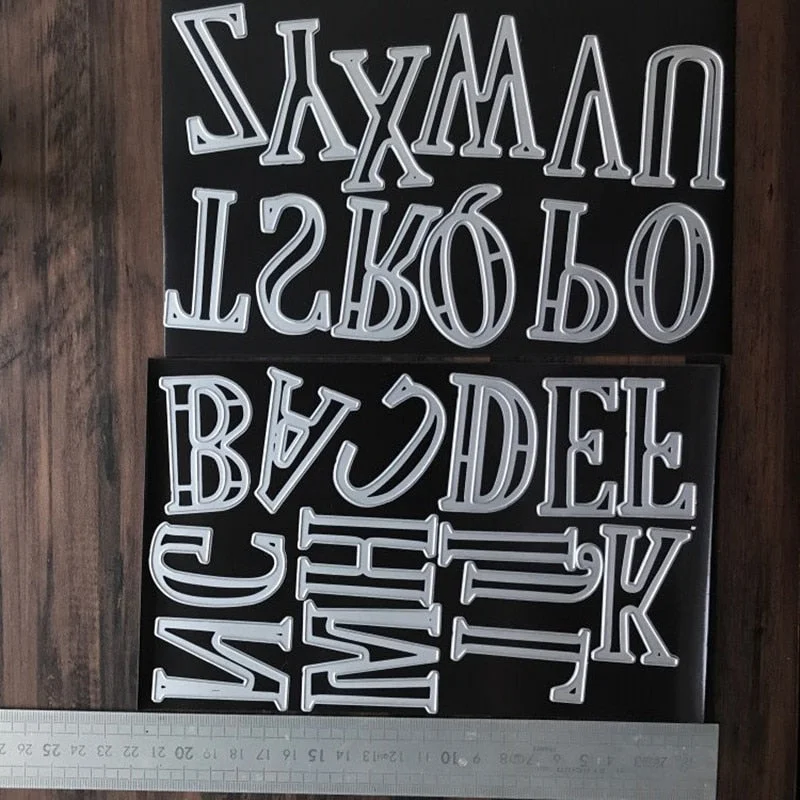 Z Y X W V U
T S R Q P O
B A C D E F
G H I J K
N M L
26 25 24 23 22 21 20 19 18 17 16 15 14 13 12 11 10 9 8 7 6 5 4 3 2